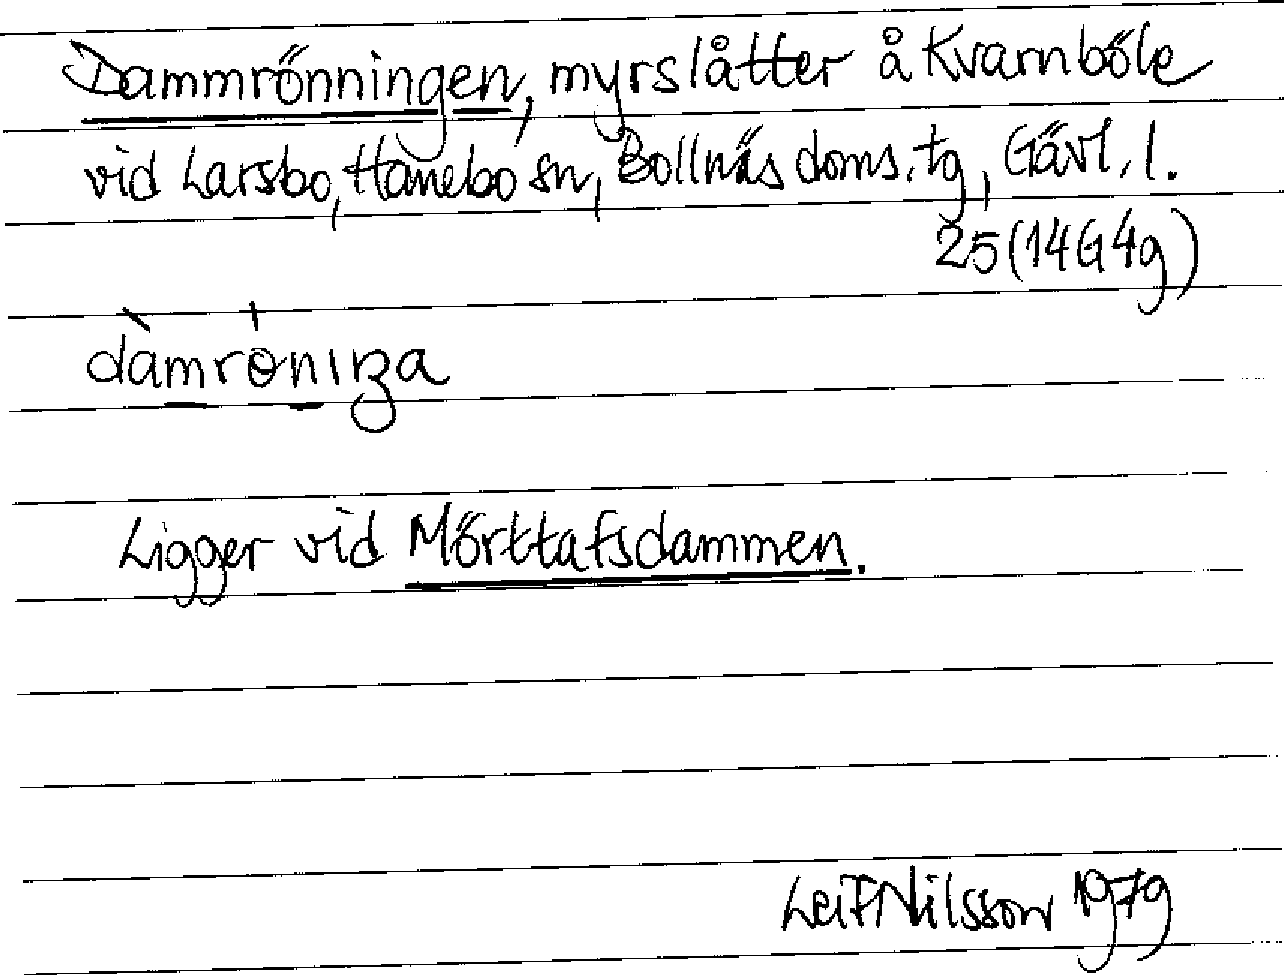 Dammrönningen, myrslåtter å Kvarnböle
vid Larsbo, Hanebo sn, Bollnäs doms. tg, Gävl. l.
25 (14G4g)
dàmrö̀nıŋa
Ligger vid Mörttafsdammen.
Leif Nilsson 1979